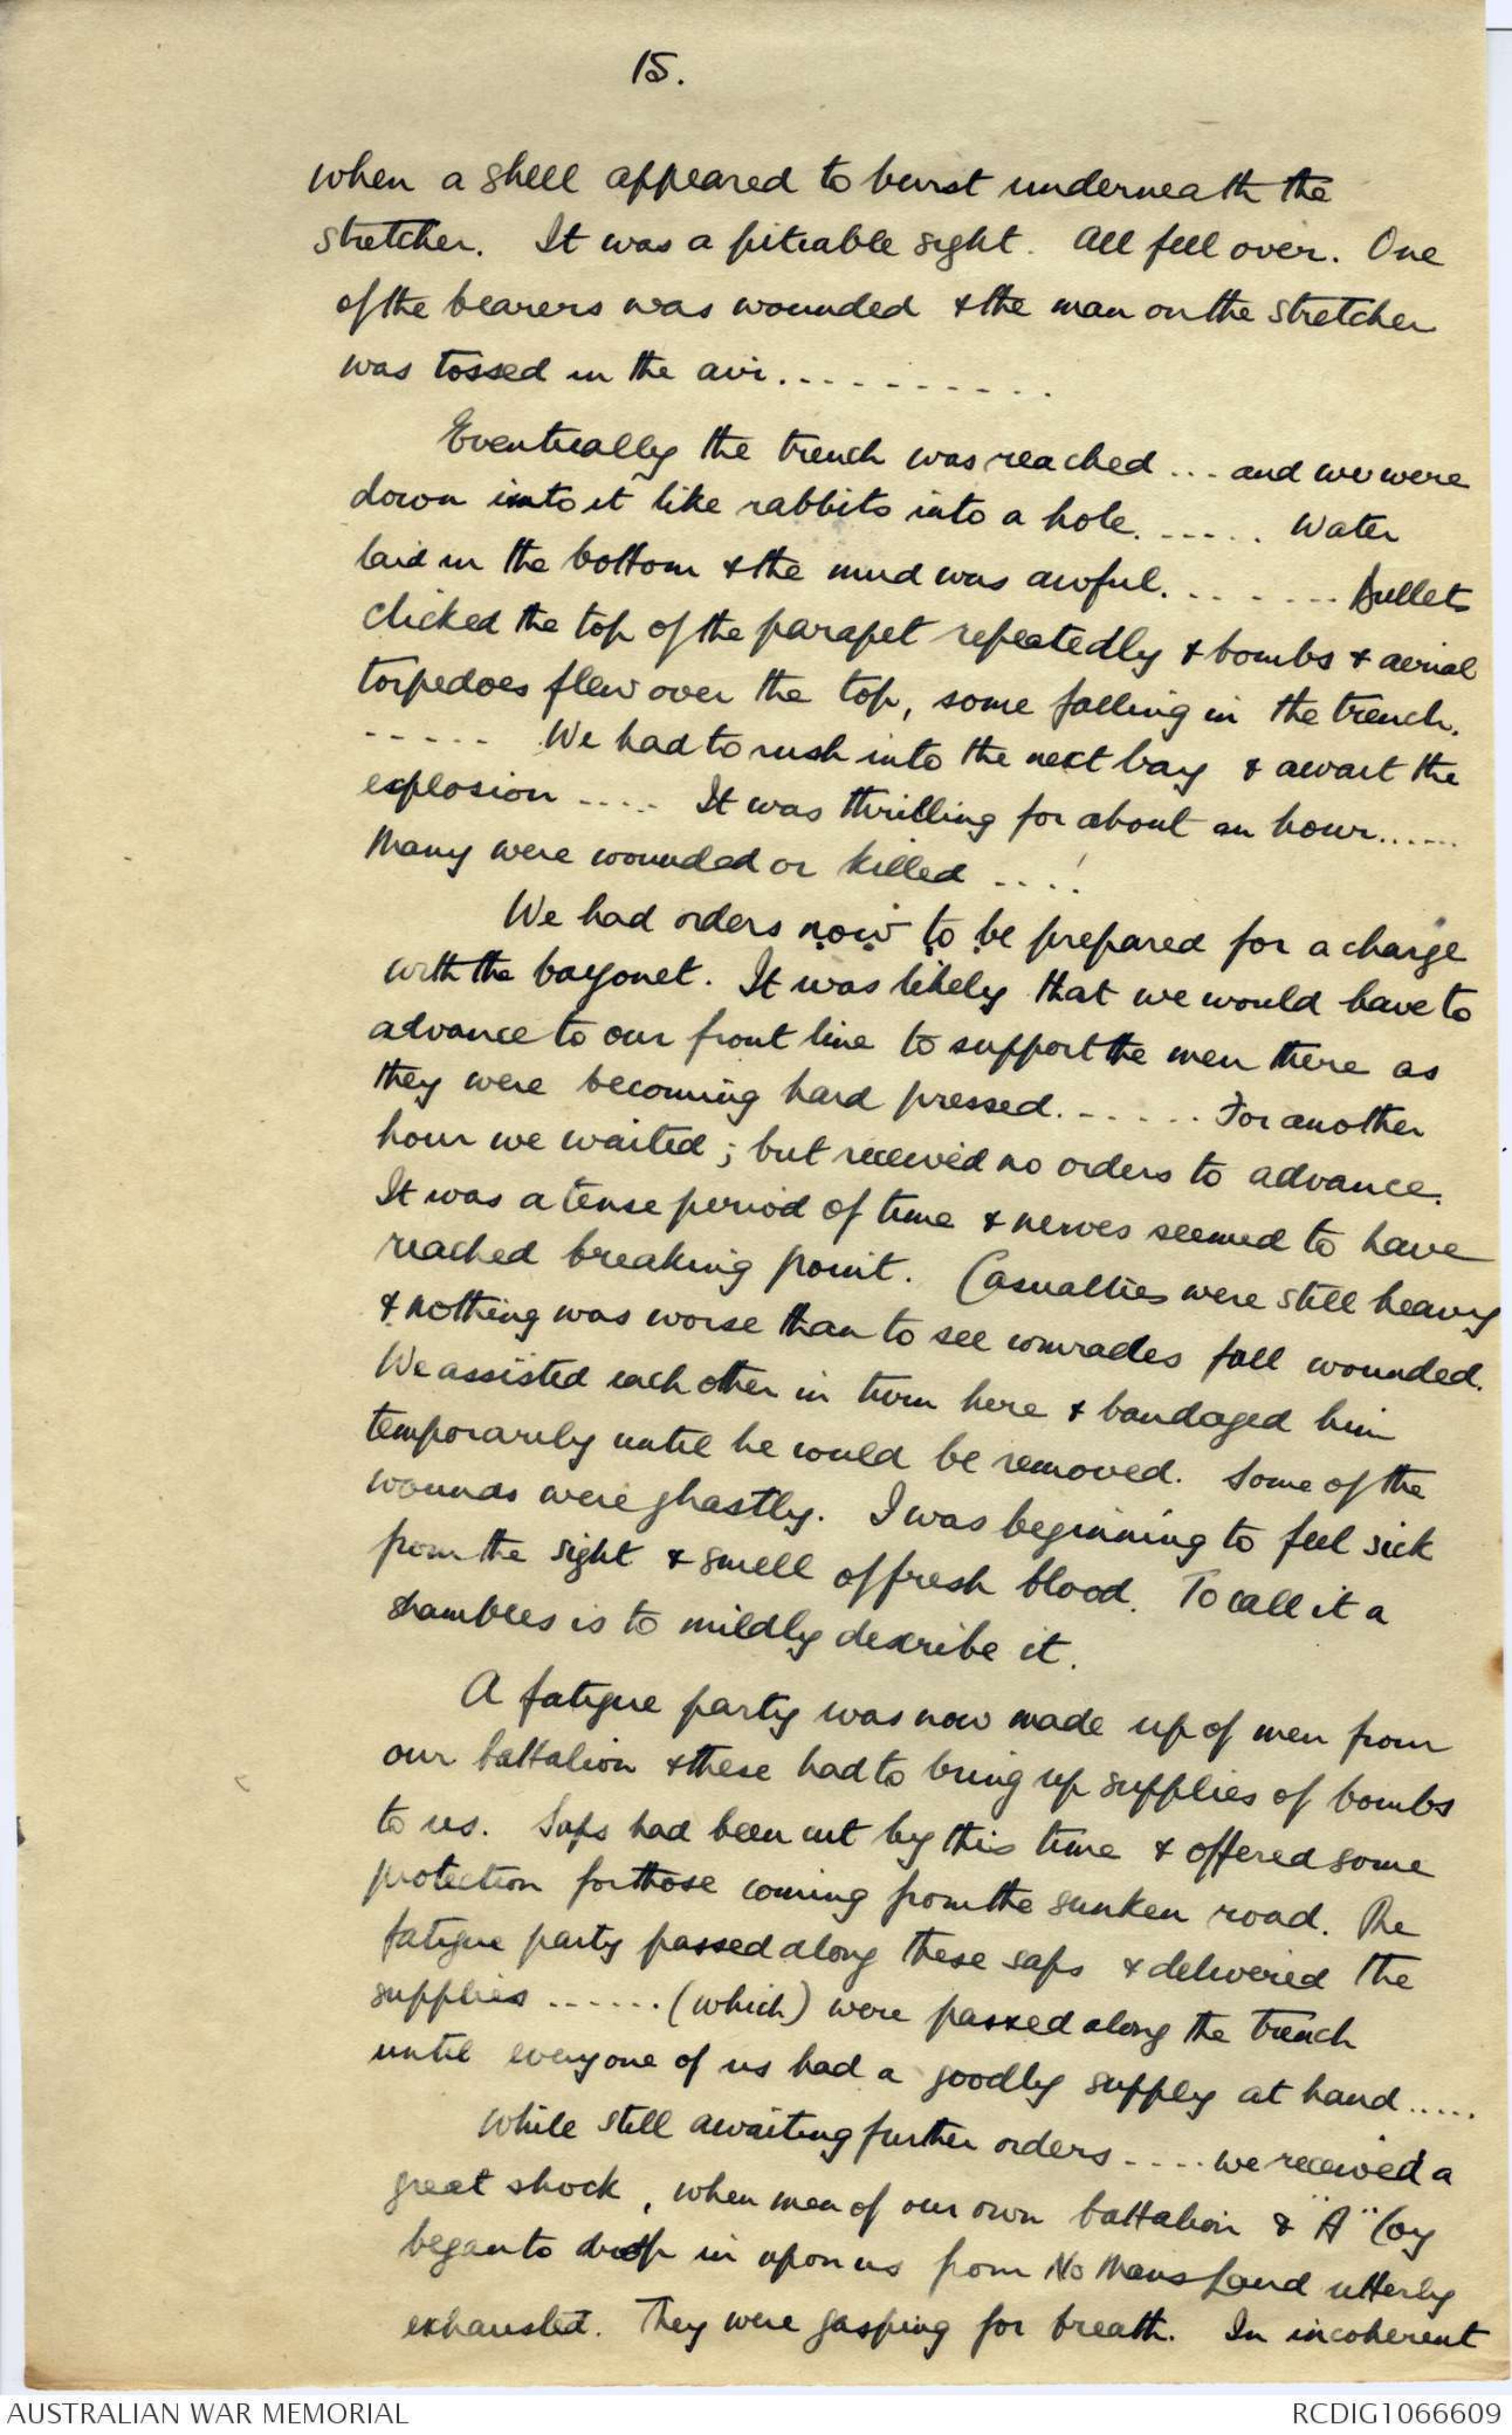 15.
when a shell appeared to burst underneath the
stretcher. It was a pitiable sight. All fell over. One
of the bearers was wounded & the man on the stretcher
was tossed in the air...........
Eventually the trench was reached ... and we were
down into it like rabbits into a hole. ..... Water
laid in the bottom & the mud was awful. ....... Bullets
clicked the top of the parapet repeatedly & bombs & aerial
torpedoes flew over the top, some falling in the trench.
..... We had to rush into the next bay & await the
explosion ..... It was thrilling for about an hour......
Many were wounded or killed ....!
We had orders now to be prepared for a charge
with the bayonet. It was likely that we would have to
advance to our front line to support the men there as
they were becoming hard pressed. ..... For another
hour we waited; but received no orders to advance.
It was a tense period of time & nerves seemed to have
reached breaking point. Casualties were still heavy
& nothing was worse than to see comrades fall wounded.
We assisted each other in turn here & bandaged him
temporarily until he could be removed. Some of the
wounds were ghastly. I was beginning to feel sick
from the sight & smell of fresh blood. To call it a
shambles is to mildly describe it.
A fatigue party was now made up of men from
our battalion & these had to bring up supplies of bombs
to us. Saps had been cut by this time & offered some
protection for those coming from the sunken road. The
fatigue party passed along these saps & delivered the
supplies ...... (which) were passed along the trench
until everyone of us had a goodly supply at hand.....
While still awaiting further orders .... we received a
great shock, when men of our own battalion & "A" Coy
began to drop in upon us from No Mans Land utterly
exhausted. They were gasping for breath. In incoherent
AUSTRALIAN WAR MEMORIAL
RCDIG1066609